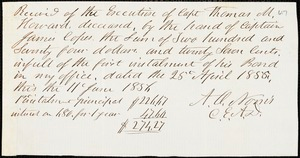 Received of the Executors of Capt Thomas M.
Howard deceased, of the hand of Captain
James Copes the Sum of Two hundred and
Seventy four dollars and twenty Seven Cents,
in full of the first instalment of his Bond
in my office, dated the 25th April 1855,
this the 11th June 1856
1st instalment principal $226.67
interest on 680 for 1 year 47.60
$274.27
A. O. Norris
C.E.A.D.